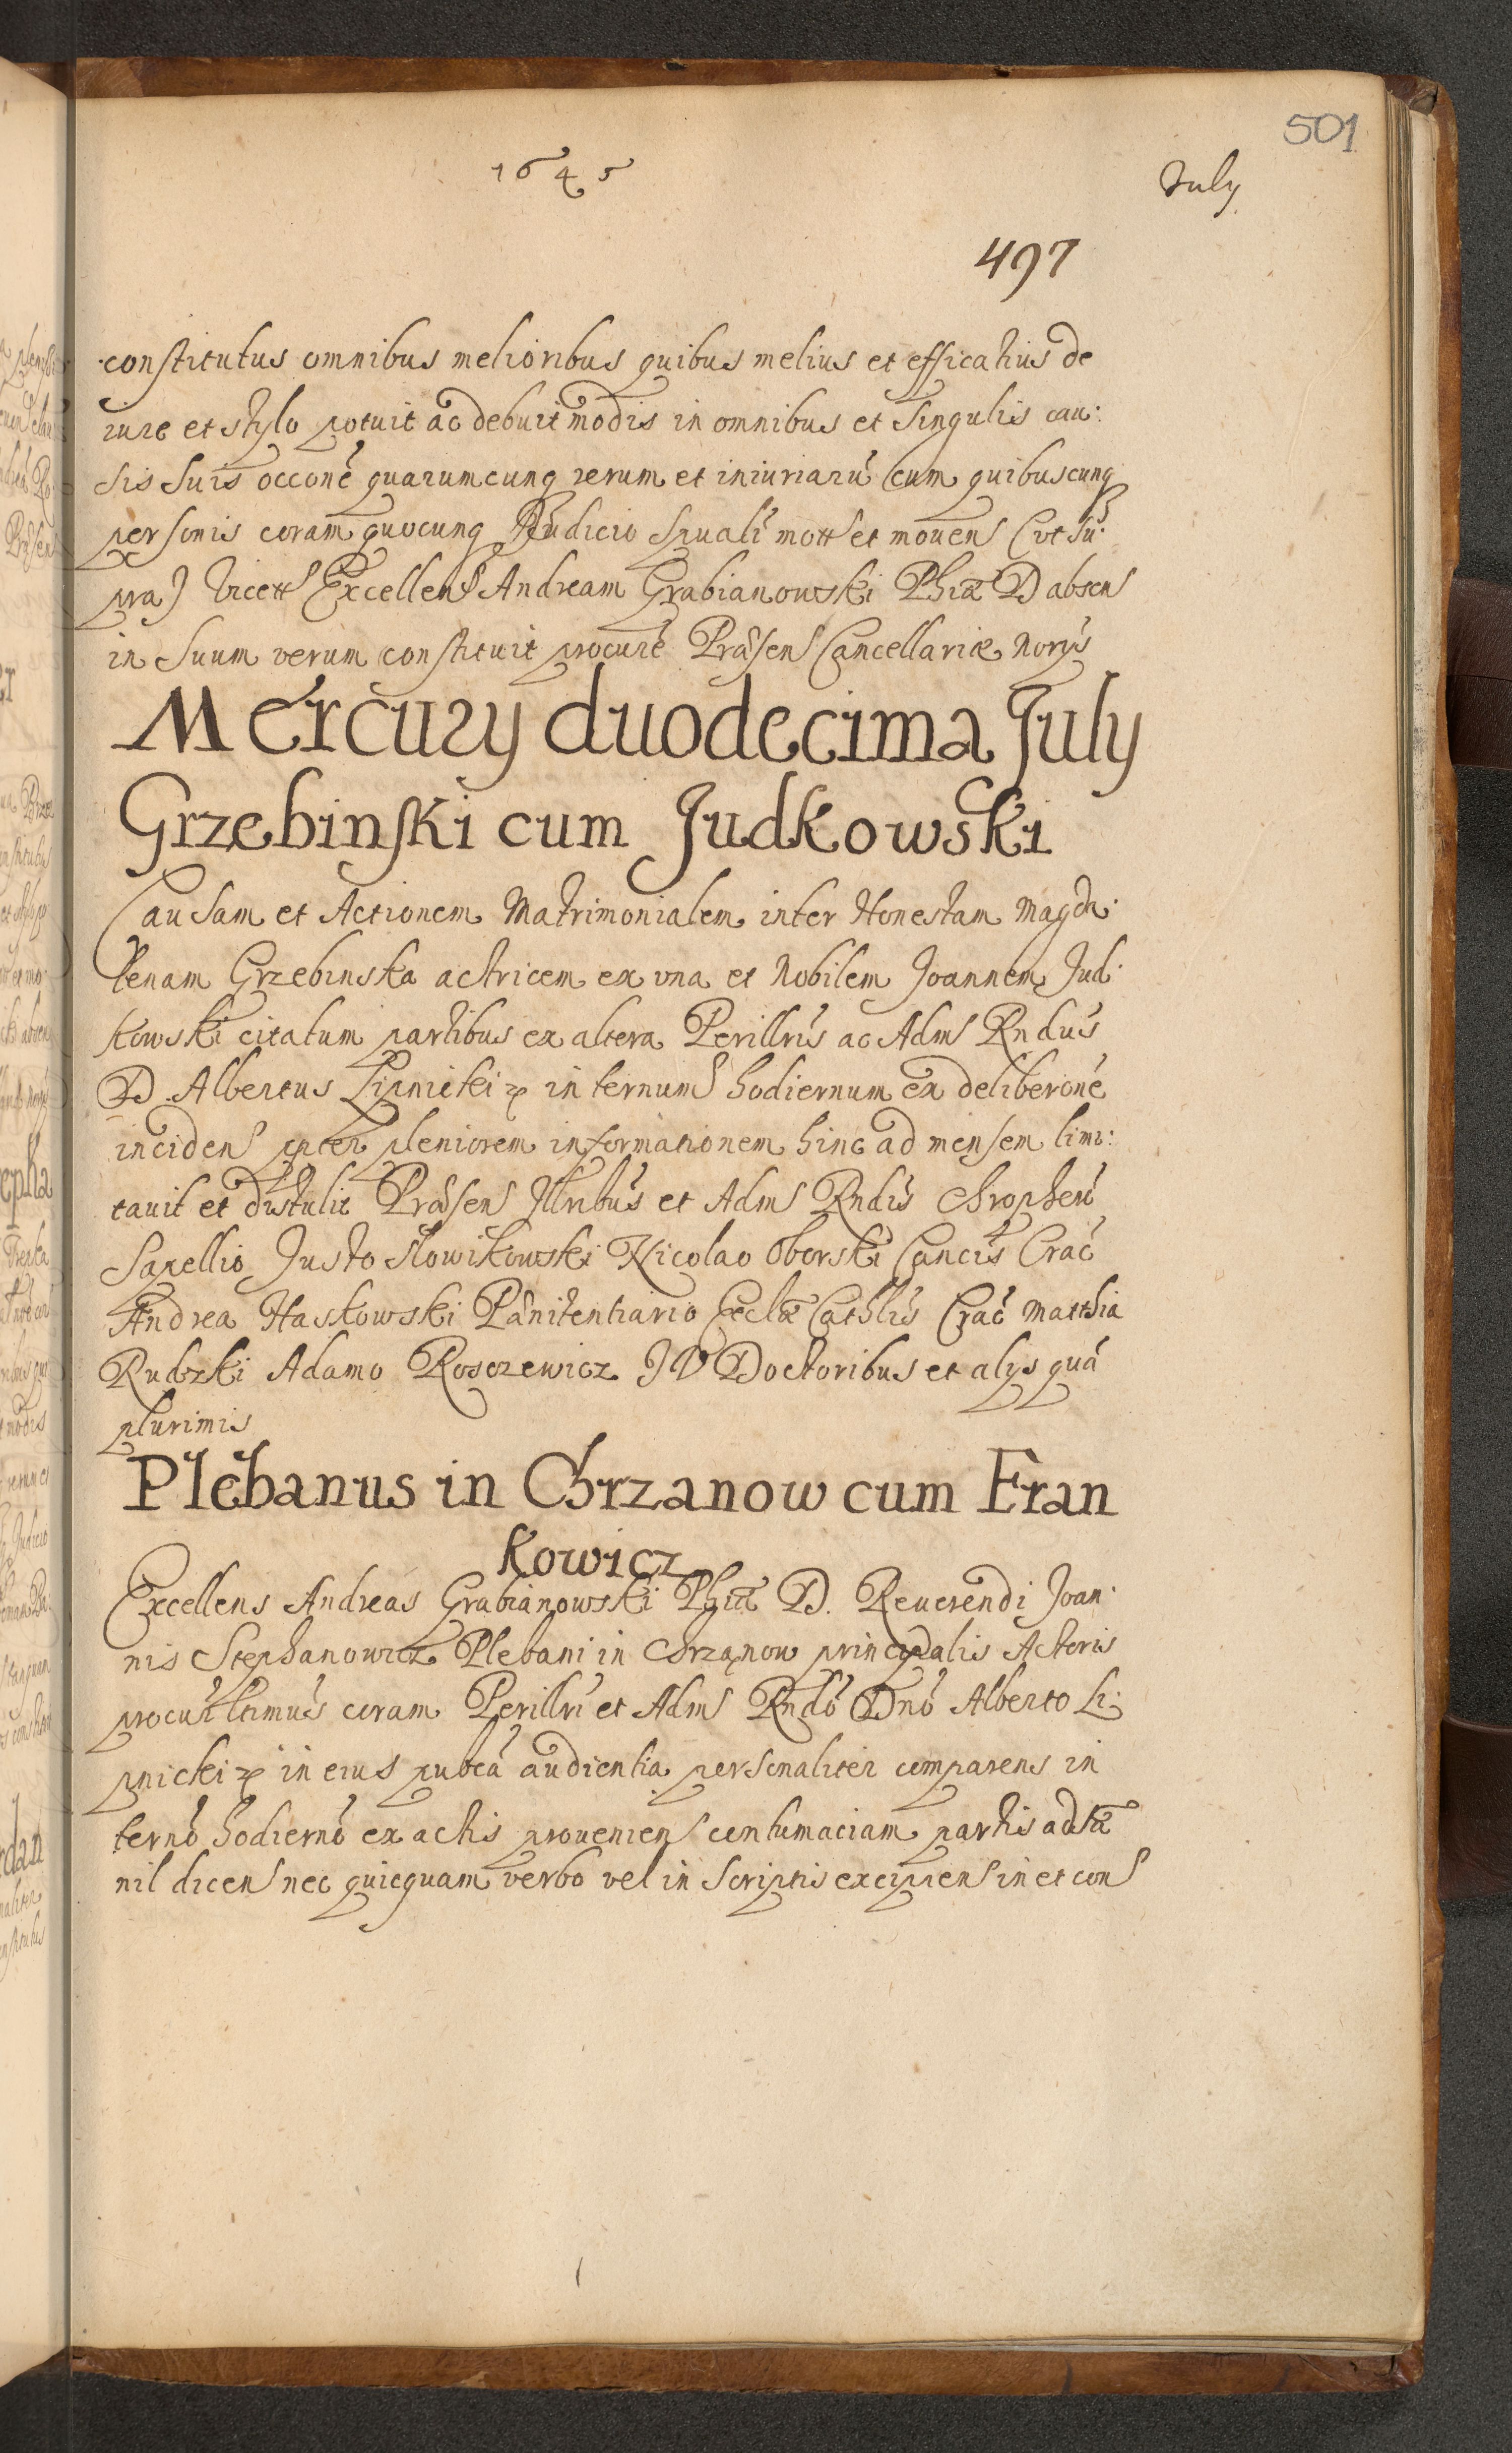 501
1645
July
497
constitutus omnibus melioribus quibus melius et efficatius de
iure et stylo potuit ac debuit modis in omnibus et singulis cau:
sis suis occone quarumcunq rerum et iniuriaru cum quibuscunq
personis coram quocunq Iudicio spuali mott et mouen (vt su:
pra) vicett Excellen Andream Grabianowski Phiæ D absen
in suum verum constituit procure Præsen Cancellariæ Norys
Mercury duodecima July
Grzebinski cum Judkowski
Causam et Actionem Matrimonialem inter Honestam Magda:
lenam Grzebinska actricem ex vna et Nobilem Joannem Jud:
kowski citatum partibus ex altera Perillris ac Adm Rndus
D. Albertus Lipnicki in ternum hodiernum ex deliberone
inciden ppter pleniorem informationem hinc ad mensem limi:
tauit et distulit Præsen Illribus et Adm Rndis Chrophero
Sapellio Justo Slowikowski Nicolao Oborski Cancis Crac
Andrea Haskowski Pænitentiario Ecclæ Cathlis Crac Matthia
Rudzki Adamo Rosczewicz JV Doctoribus et alys qua
plurimis
Plebanus in Chrzanow cum Fran
kowicz
Excellens Andreas Grabianowski Phiæ D. Reuerendi Joan:
nis Stephanowicz Plebani in Chrząnow principalis Actoris
procur ltimus coram Perillri et Adm Rndo Dno Alberto Li:
pnicki in eius pubca audientia personaliter comparens in
terno hodierno ex actis prouenien contumaciam partis adtæ
nil dicen nec quicquam verbo vel in scriptis excipien in et con